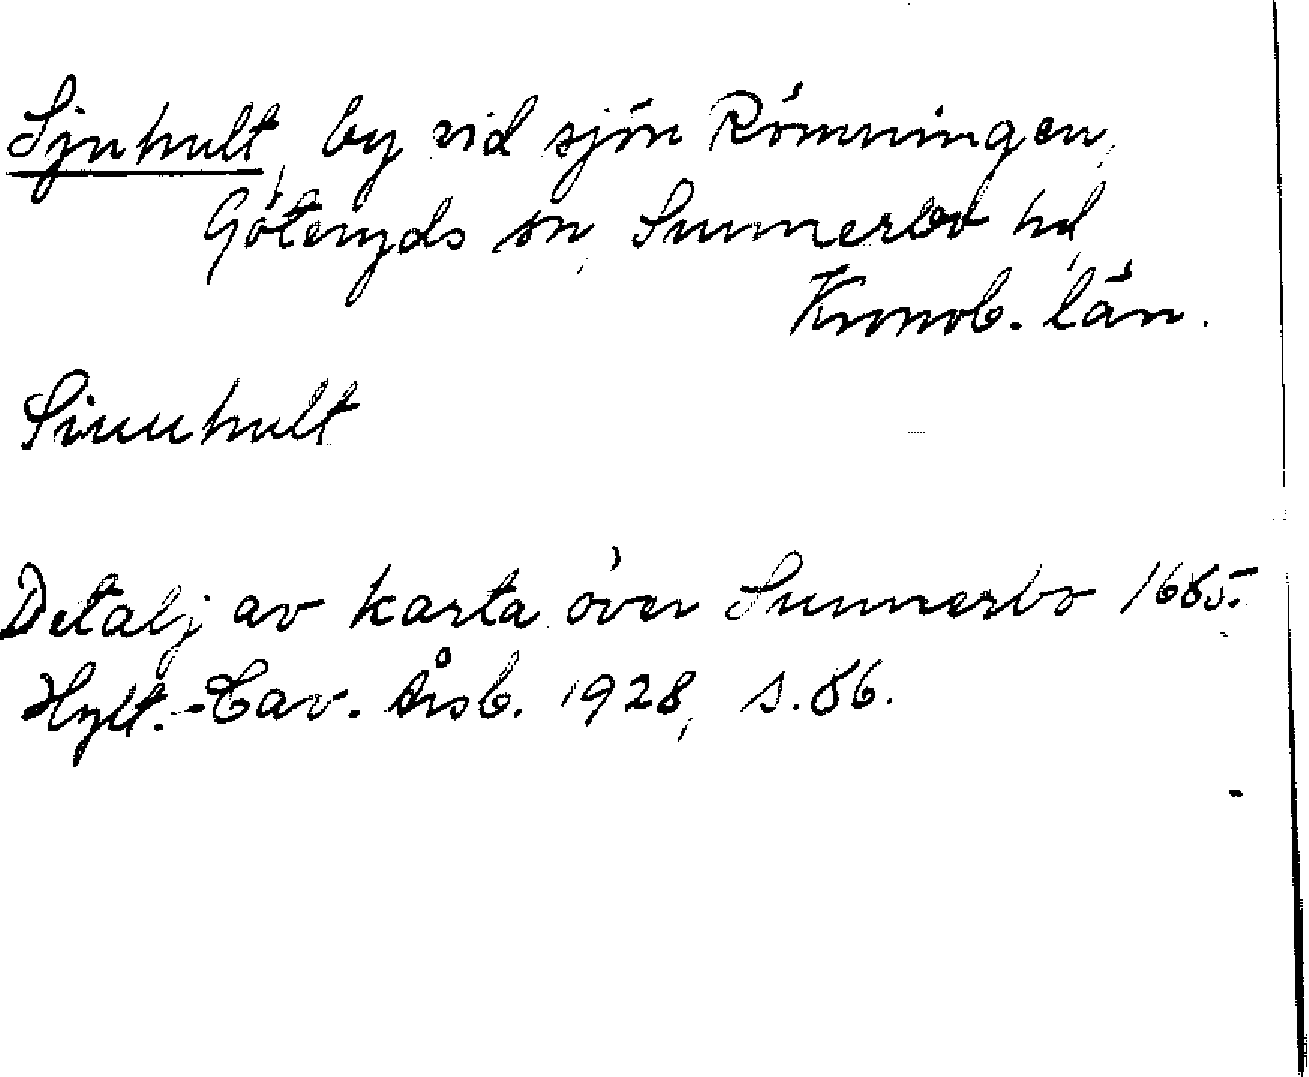 Sjuhult, by vid sjön Römningen,
Göteryds sn, Sunnerbo hd,
Kronob. län.
Siuuhult
Detalj av karta över Sunnerbo 1685.
Hylt.-Cav. Årsb. 1928, s. 86.